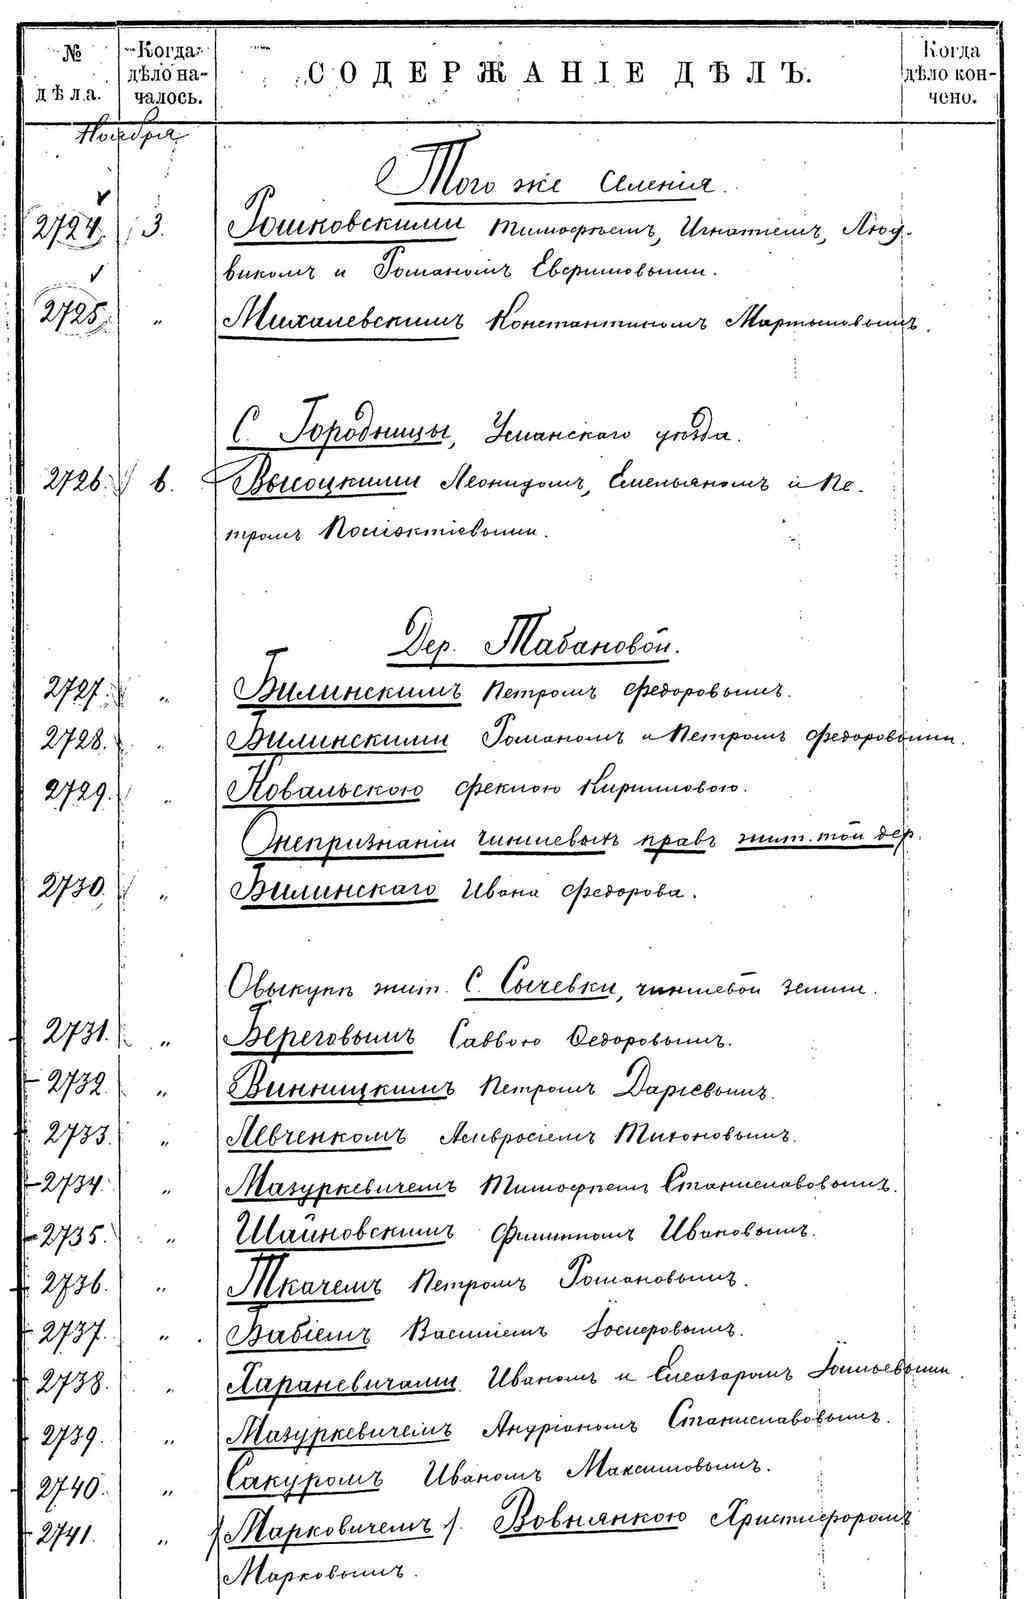 № дѣла.
Когда дѣло началось.
СОДЕРЖАНІЕ ДѢЛЪ.
Когда дѣло кончено.
Ноября
Того же селенія.
2724. 3. Рошковскими Тимофѣемъ, Игнатіемъ, Люд-
викомъ и Романомъ
2725. „ Михалевскимъ Константиномъ Мартыновымъ.
С. Городницы, Уманскаго уѣзда.
2726. 6. Высоцкими Леонидомъ, Емельяномъ и Пе-
тромъ
Дер. Табановой.
2727. „ Билинскимъ Петромъ Федоровымъ.
2728. „ Билинскими Романомъ и Петромъ Федоровыми.
2729. „ Ковальскою Феклою Кирилловою.
О непризнаніи чиншевыхъ правъ жит. той дер.
2730. „ Билинскаго Ивана Федорова.
О выкупѣ жит. С. Сычевки, чиншевой земли.
2731. „ Береговымъ Саввою Федоровымъ.
2732. „ Винницкимъ Петромъ Даріевымъ.
2733. „ Левченкомъ Амвросіемъ Тихоновымъ.
2734. „ Мазуркевичемъ Тимофѣемъ Станиславовымъ.
2735. „ Шайновскимъ Филиппомъ Ивановымъ.
2736. „ Ткачемъ Петромъ Романовымъ.
2737. „ Бабіемъ Василіемъ Іосифовымъ.
2738. „ Хараневичами Иваномъ и Елеазаромъ
2739. „ Мазуркевичемъ Андріаномъ Станиславовымъ.
2740. „ Сакуромъ Иваномъ Максимовымъ.
2741. „ /Марковичемъ/. Вовнянкою Христифоромъ
Марковымъ.